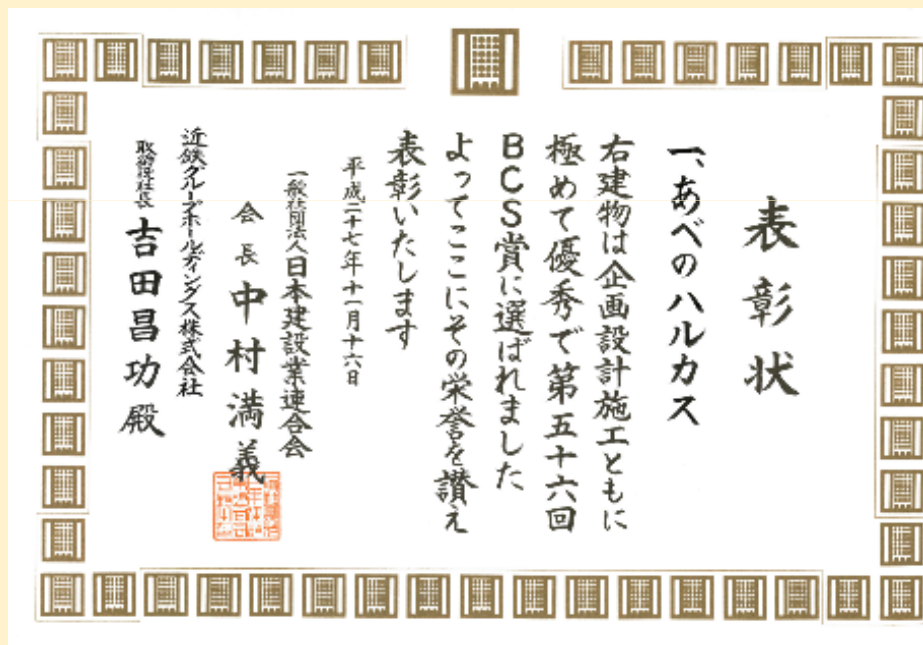 表彰状
一、あべのハルカス
右建物は企画設計施工ともに
極めて優秀で第五十六回
BCS賞に選ばれました
よってここにその栄誉を讃え
表彰いたします
平成二十七年十一月十六日
一般社団法人日本建設業連合会
会長 中村満義
近鉄グループホールディングス株式会社
取締役社長 吉田昌功殿